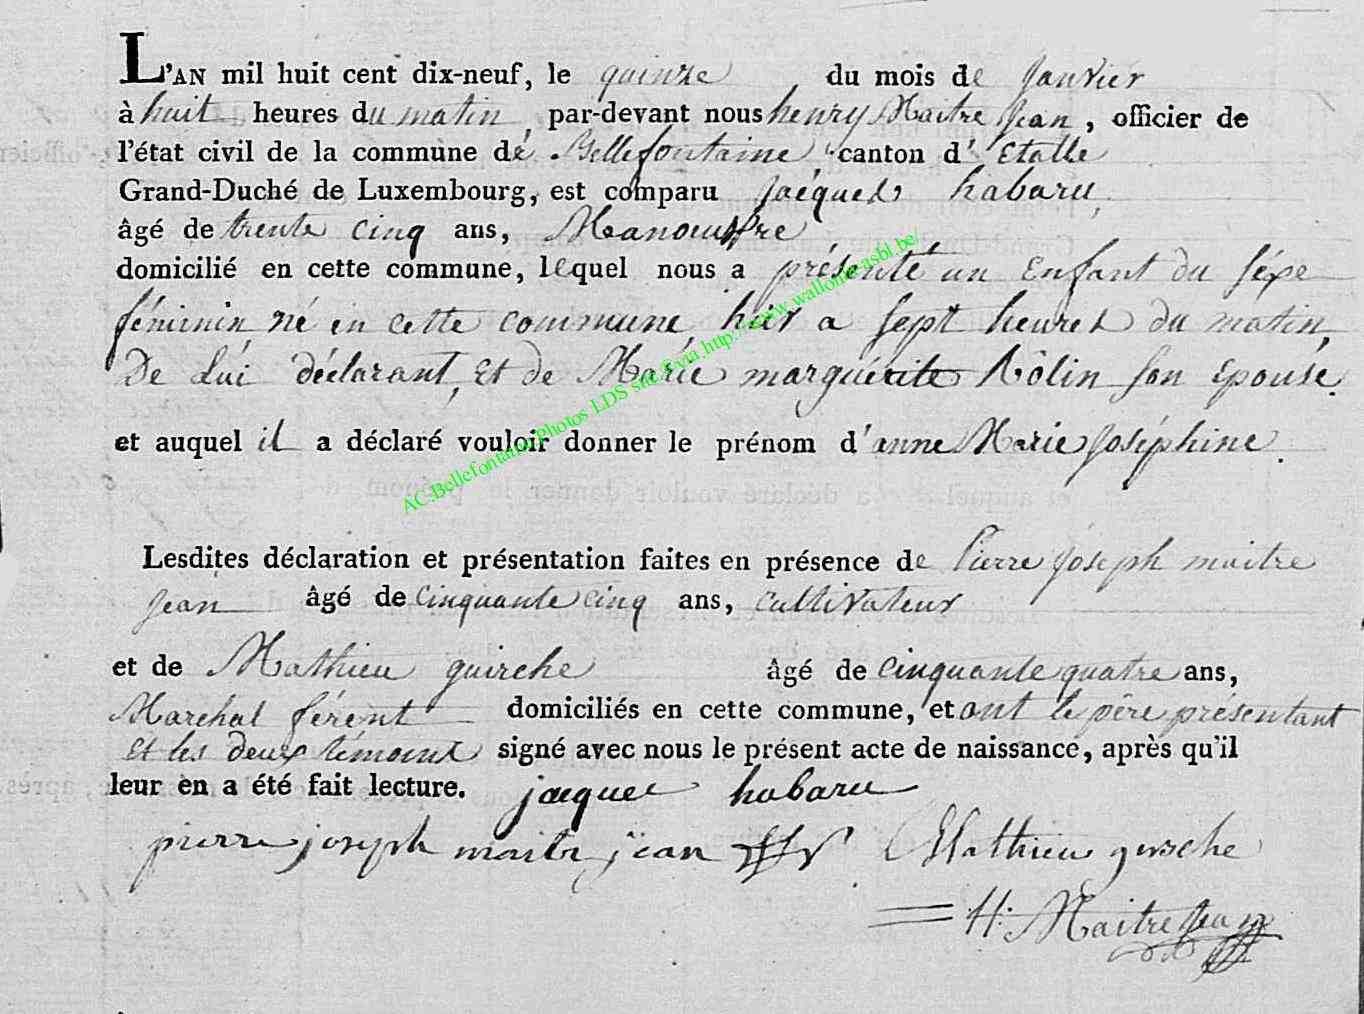 L'AN mil huit cent dix-neuf, le quinze du mois de Janvier
à huit heures du matin, par-devant nous henry Maitre Jean, officier de
l'état civil de la commune de Bellefontaine canton d' Etalle
Grand-Duché de Luxembourg, est comparu Jacques habaru,
âgé de trente cinq ans, Manouvre
domicilié en cette commune, lequel nous a présenté un Enfant du séxe
féminin né en cette commune hier a sept heures du matin,
De Lui déclarant, et de Marie marguérite Rôlin son Epouse.
et auquel il a déclaré vouloir donner le prénom d'anne Marie Joséphine.
AC.Bellefontaine Photos LDS sur & via http://www.wallonia-asbl.be/
Lesdites déclaration et présentation faites en présence de Pierre Joseph maitre
Jean âgé de Cinquante cinq ans, cultivateur
et de Mathieu guirche âgé de Cinquante quatre ans,
Marchal férent domiciliés en cette commune, et ont le père présentant
et les deux témoins signé avec nous le présent acte de naissance, après qu'il
leur en a été fait lecture. jacque habaru
pierre joseph maitr jean Mathieu girche
H: Maitre Jean